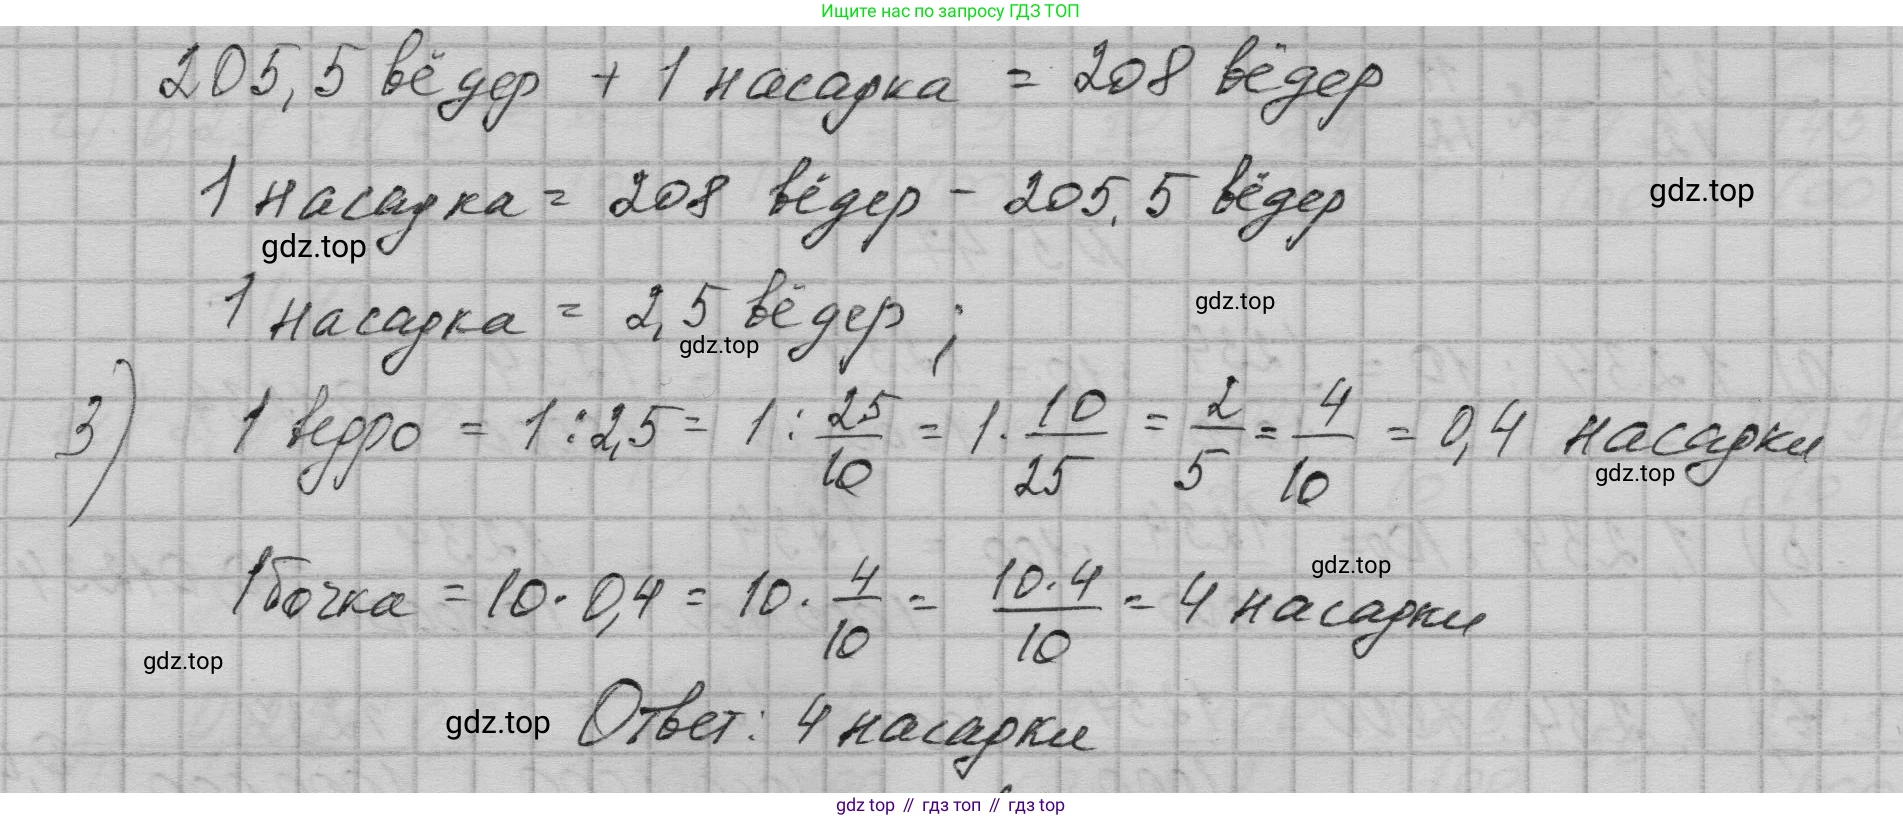 Ищите нас по запросу ГДЗ ТОП
205,5 вёдер + 1 насадка = 208 вёдер
1 насадка = 208 вёдер - 205,5 вёдер
gdz.top
gdz.top
1 насадка = 2,5 вёдер ;
gdz.top
gdz.top
3) 1 ведро = 1 : 2,5 = 1 : 25/10 = 1 · 10/25 = 2/5 = 4/10 = 0,4 насадки
gdz.top
1 бочка = 10 · 0,4 = 10 · 4/10 = 10·4/10 = 4 насадки
gdz.top
gdz.top
Ответ: 4 насадки
gdz.top
gdz top // гдз топ // гдз top